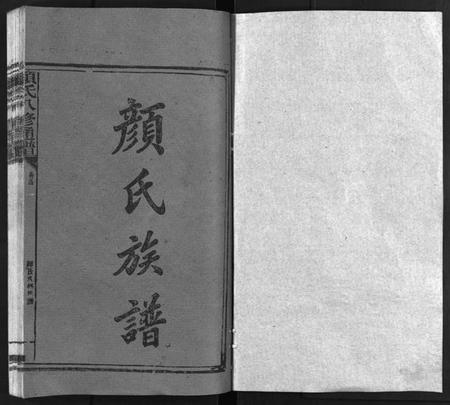 顏氏族譜
顏氏八修通譜